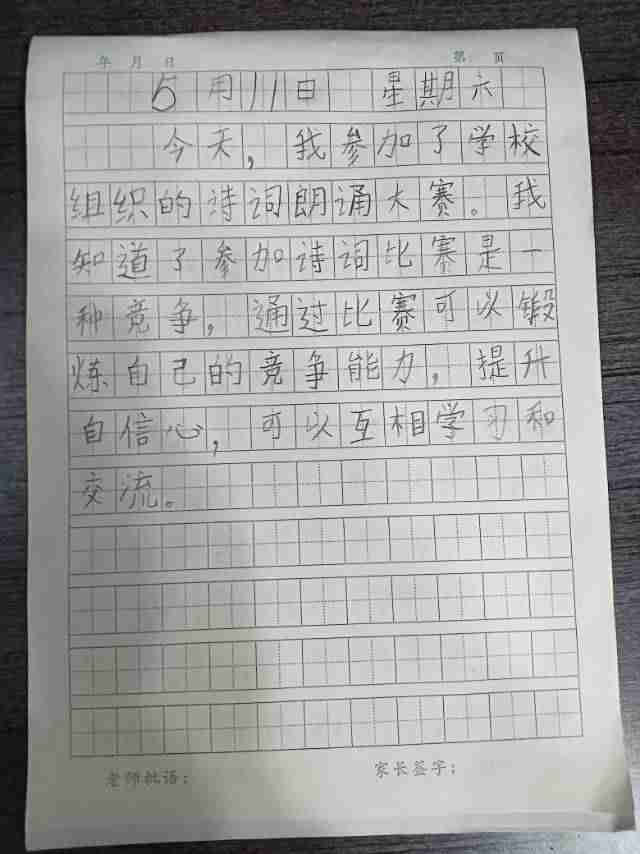 年 月 日 第 页
5月11日 星期六
今天，我参加了学校
组织的诗词朗诵大赛。我
知道了参加诗词比赛是一
种竞争，通过比赛可以锻
炼自己的竞争能力，提升
自信心，可以互相学习和
交流。
老师批语： 家长签字：